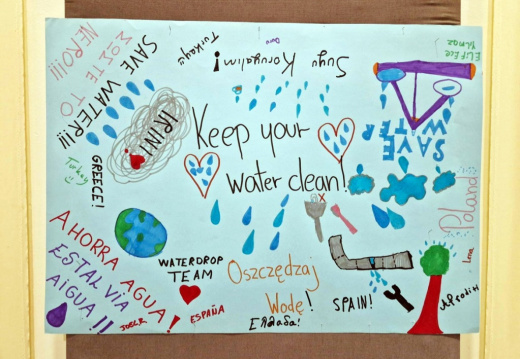 NERO!!!
ΣΩΣΤΕ ΤΟ
SAVE WATER!!!
IRINI
Turkey
GREECE!
Türkiye
Suyu
Koruyalım!
Duru
ELIFECE
Yılmaz
SAVE
WATER
Keep your
water clean!
Poland
Lena
Afroditi
AHORRA AGUA!
ESTALVIA
AIGUA!!
JOEL R
ESPAÑA
WATERDROP
TEAM
Oszczędzaj
Wodę!
Ελλάδα!
SPAIN!